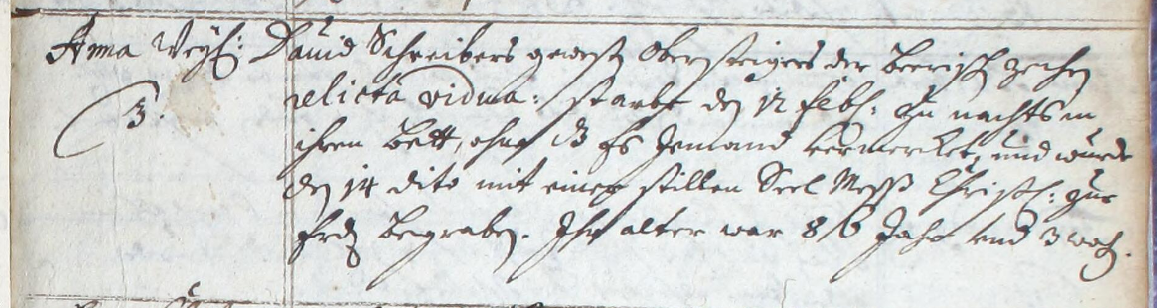 Anna Weyl: David Schreibers gewesten Obersteigers der
relicta vidua: starbe den 12 Febr: zu nachts in
3.
ihren Bett, ohne es Jemand vermercket, und wurde
den 14 dito mit einer stillen Seel Mess Christl: zur
Erden begraben. Ihr alter war 86 Jahr und 3 woch.